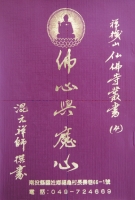 禪機山仙佛寺叢書(七)
佛心與魔心
混元禪師撰書
南投縣國姓鄉福龜村長壽巷46-1號
電話:049-724669